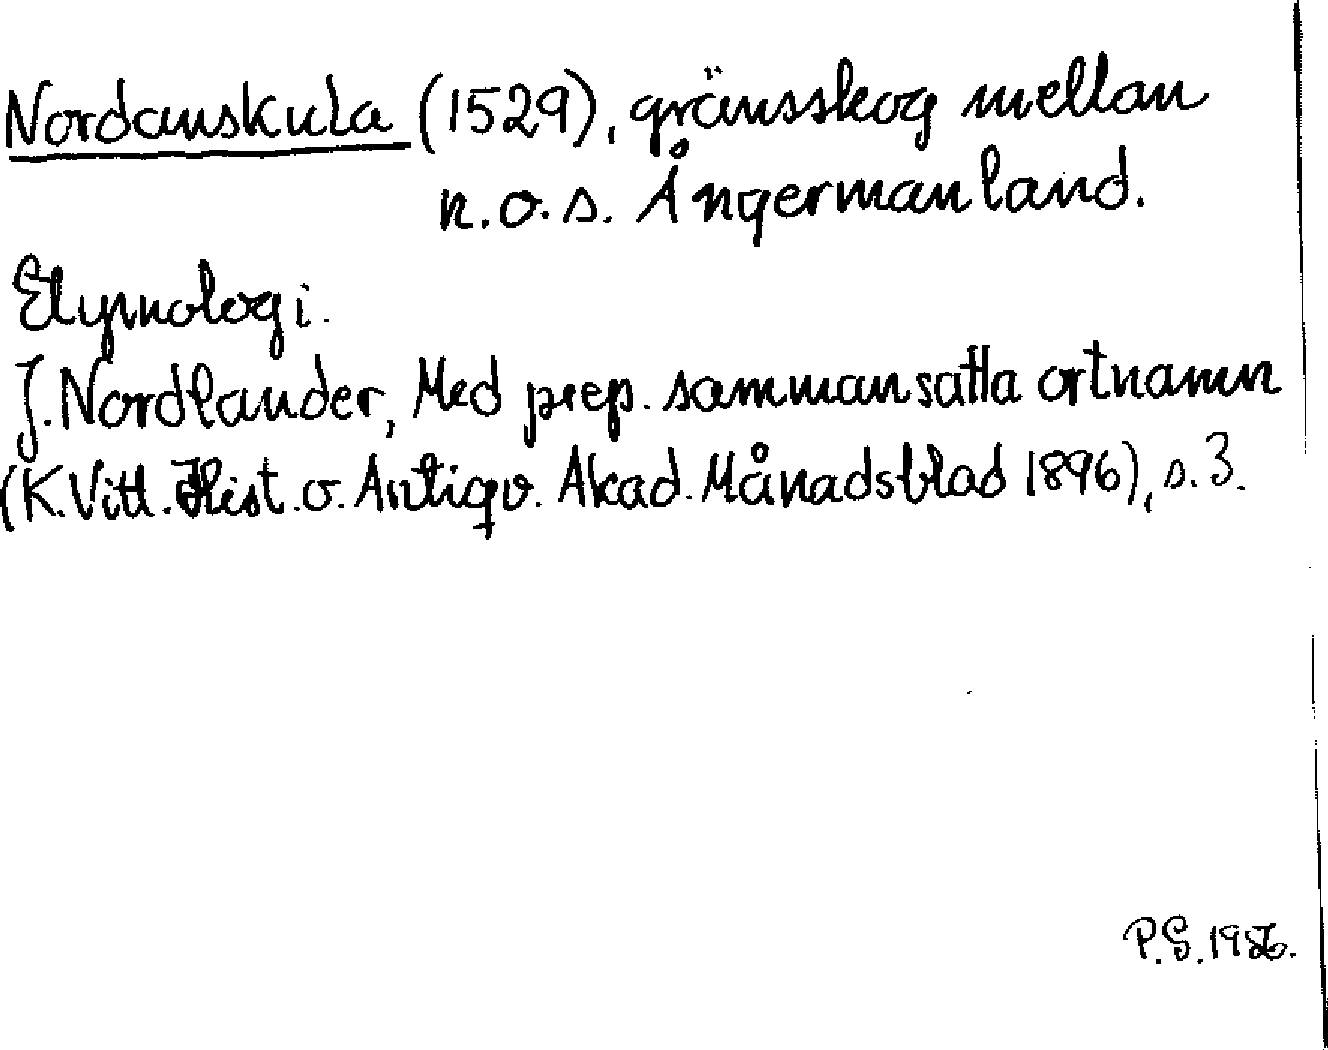 Nordanskula (1529), gränsskog mellan
n. o. s. Ångermanland.
Etymologi.
J. Nordlander, Med prep. sammansatta ortnamn
(K. Vitt. Hist. o. Antiqv. Akad. Månadsblad 1896), s. 3.
P.S. 1986.